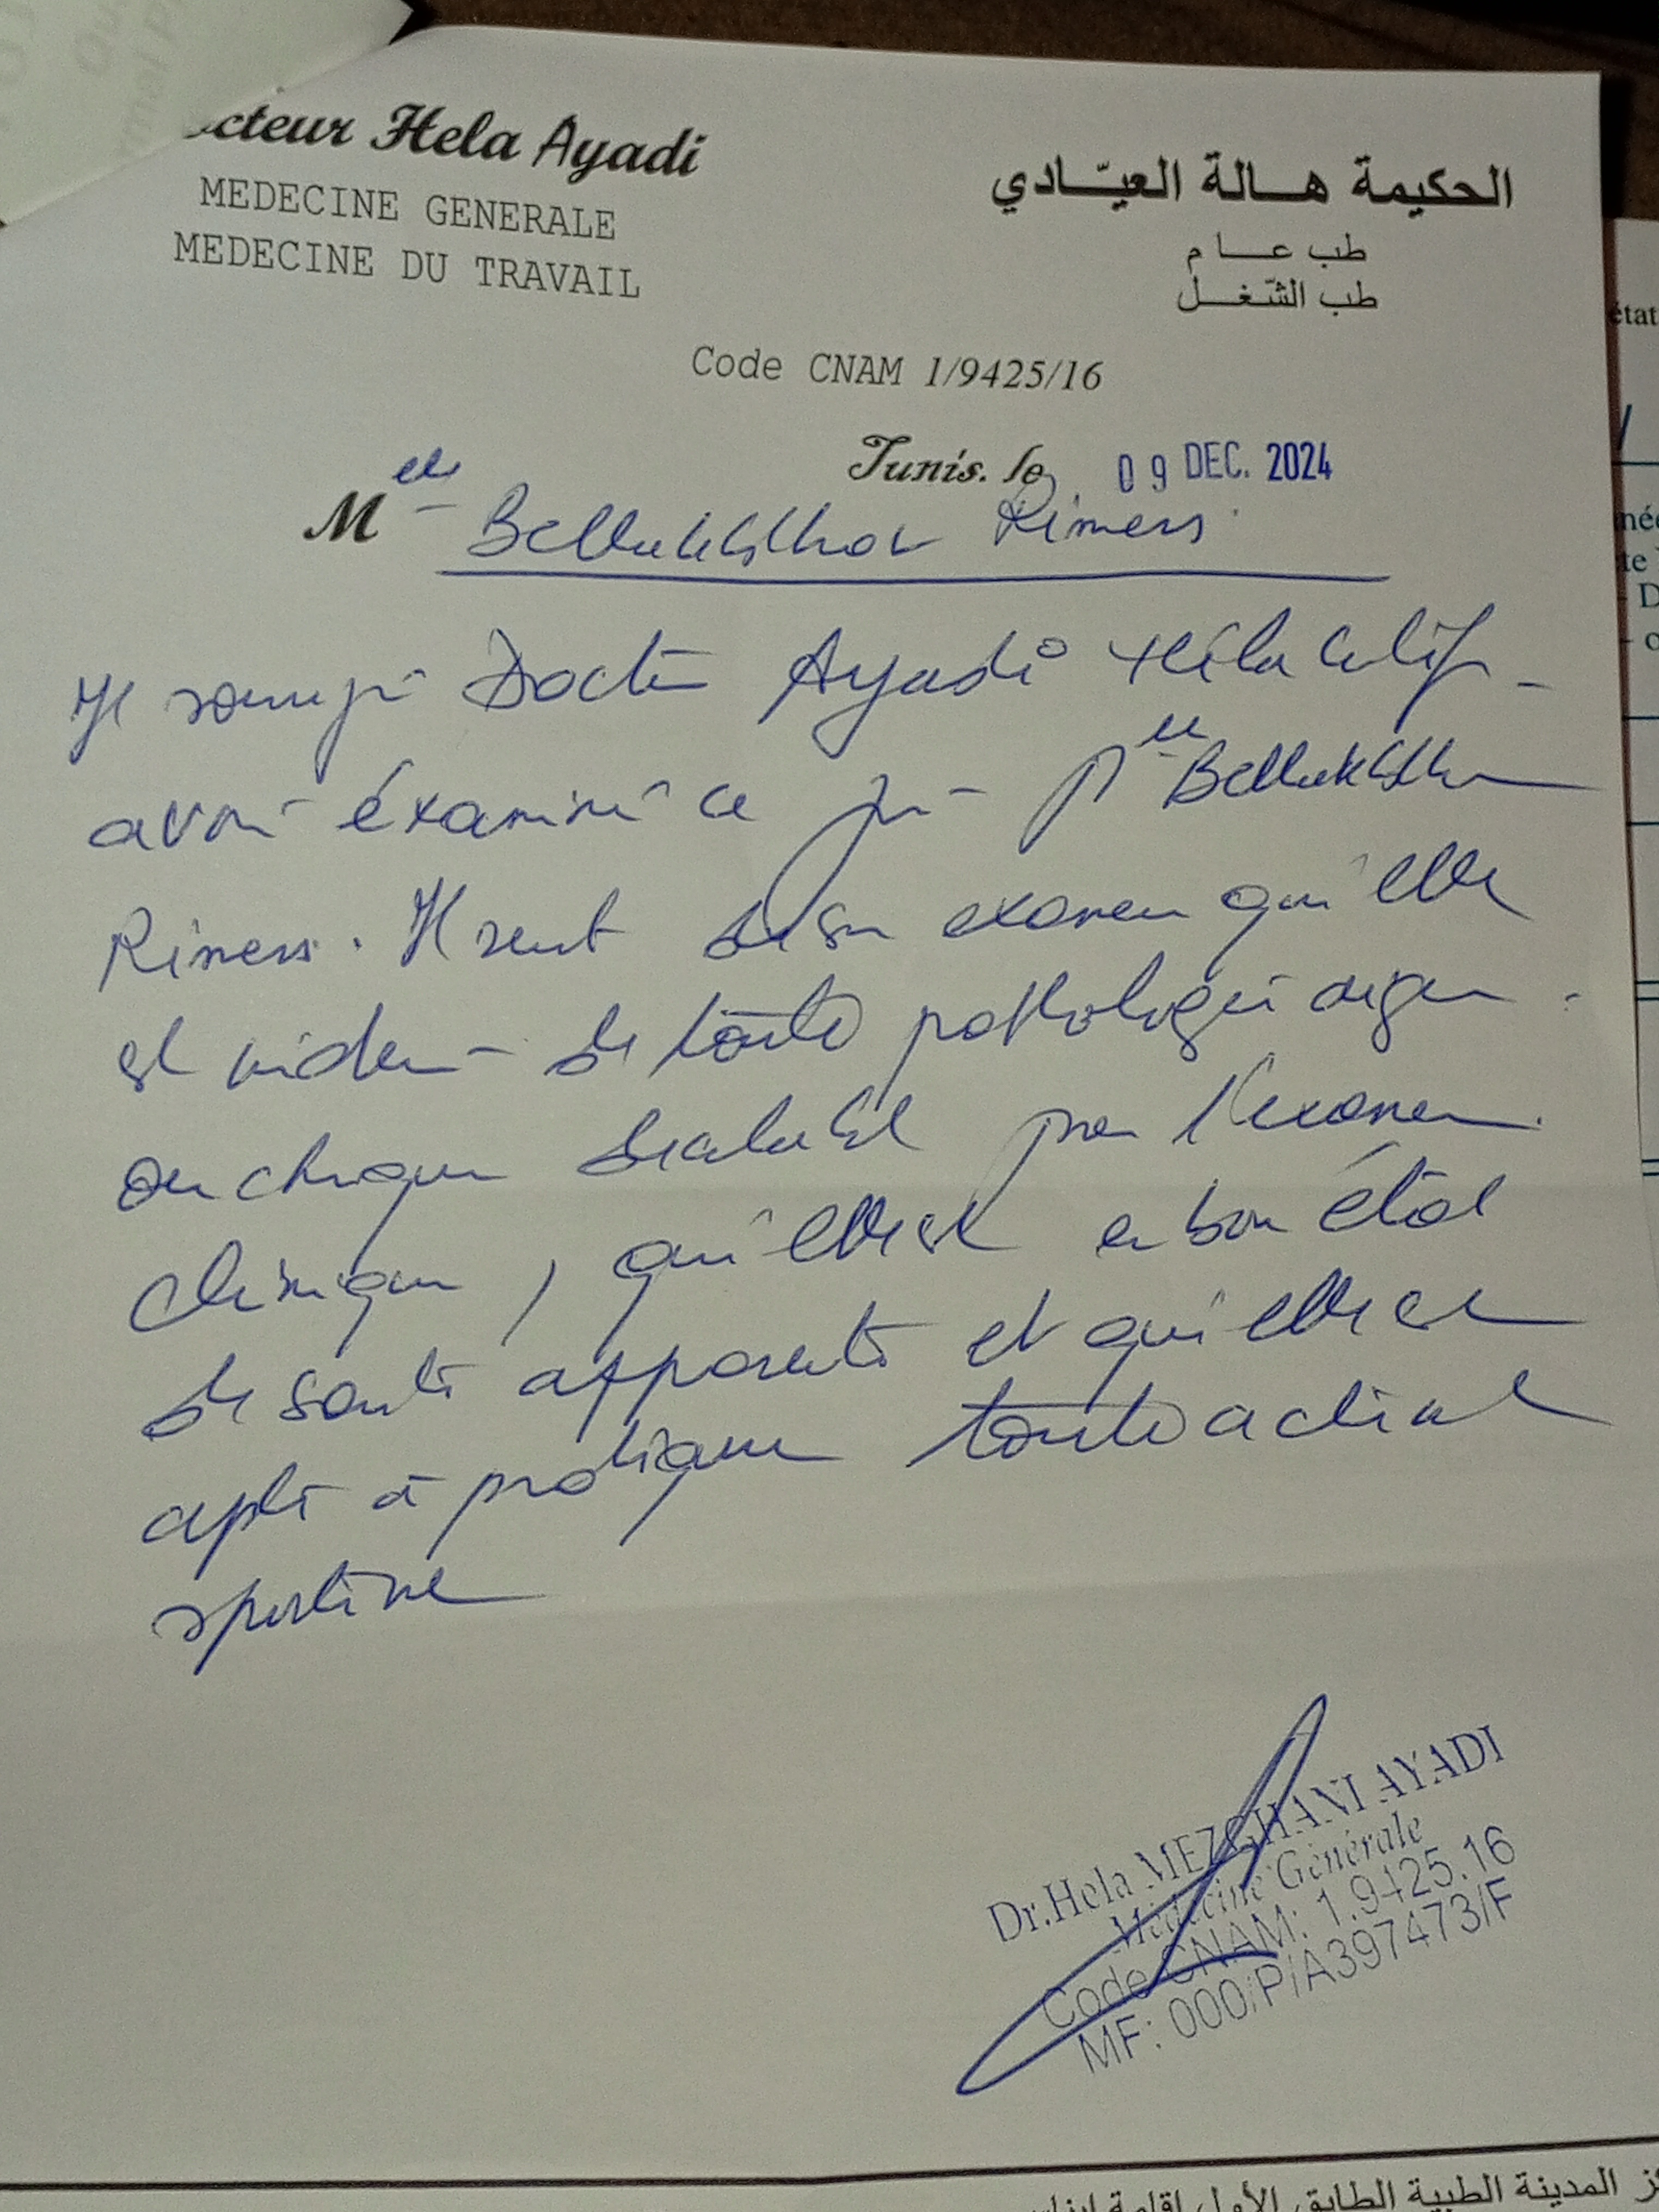 cteur Hela Ayadi
MEDECINE GENERALE
MEDECINE DU TRAVAIL
الحكيمة هالة العيّادي
طب عام
طب الشّغل
Code CNAM 1/9425/16
Tunis. le 09 DEC. 2024
Melle
Je Docteur Ayadi Héla certifie
avoir éxaminé ce jour Melle
. Il sort de son examen qu'elle
est indemne de toute pathologie aigue
ou chronique décelable par l'examen
clinique, qu'elle est en bon état
de santé apparente et qu'elle est
apte à pratiquer toute activité
sportive
Dr.Hela MEZGHANI AYADI
Médecine Générale
Code CNAM: 1.9425.16
MF: 000/P/A397473/F
المدينة الطبية الطابق الأول إقامة
état